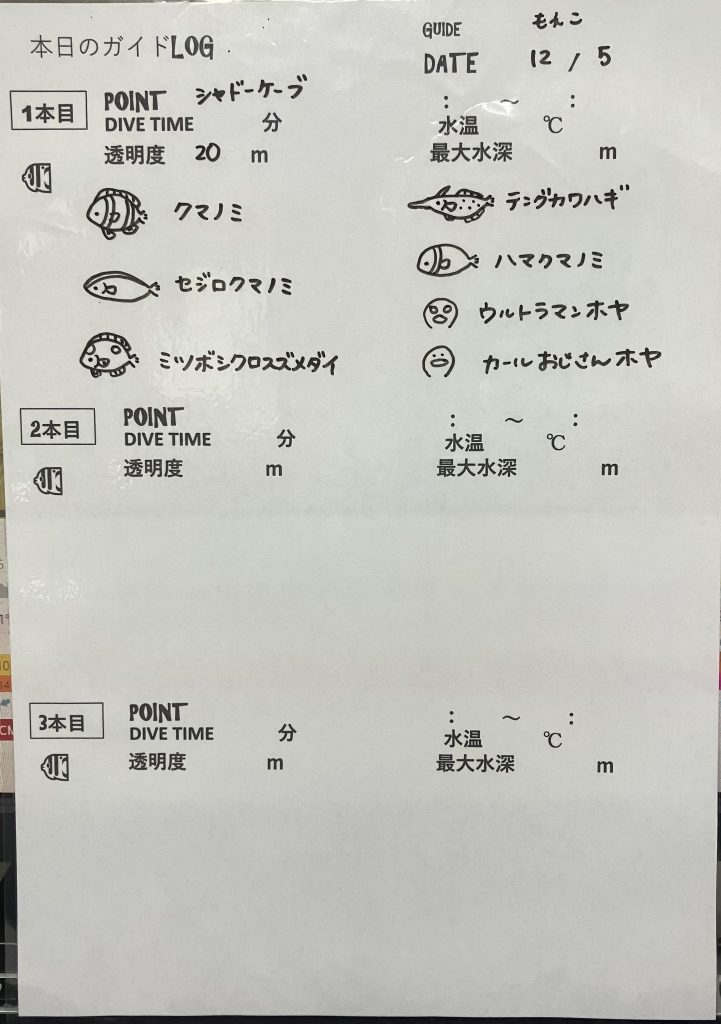 本日のガイドLOG
GUIDE もんこ
DATE 12 / 5
1本目
POINT シャドーケーブ
DIVE TIME 分
透明度 20 m
: ～ :
水温 ℃
最大水深 m
クマノミ
セジロクマノミ
ミツボシクロスズメダイ
テングカワハギ
ハマクマノミ
ウルトラマンホヤ
カールおじさんホヤ
2本目
POINT
DIVE TIME 分
透明度 m
: ～ :
水温 ℃
最大水深 m
3本目
POINT
DIVE TIME 分
透明度 m
: ～ :
水温 ℃
最大水深 m